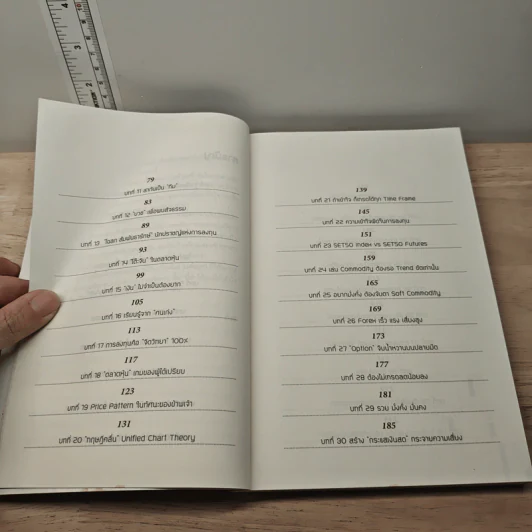 79
บทที่ 11 แต่ก้นเป็น "ทีม"
83
บทที่ 12 "มวย" เพื่อผมสัจธรรม
89
บทที่ 13 "โฉลก สัมพันธารักษ์" นักปราชญ์แห่งการลงทุน
93
บทที่ 14 "โต๊ะจีน" ในตลาดหุ้น
99
บทที่ 15 "เงิน" ไม่จำเป็นต้องมาก
105
บทที่ 16 เรียนรู้จาก "คนเก่ง"
113
บทที่ 17 การลงทุนคือ "จิตวิทยา" 100%
117
บทที่ 18 "ตลาดหุ้น" เกมของผู้ได้เปรียบ
123
บทที่ 19 Price Pattern ในทัศนะของข้าพเจ้า
131
บทที่ 20 "ทฤษฎีคลื่น" Unified Chart Theory
139
บทที่ 21 ถ้าเข้าใจ ก็เทรดได้ทุก Time Frame
145
บทที่ 22 ความเข้าใจผิดในการลงทุน
151
บทที่ 23 SET50 Index vs SET50 Futures
159
บทที่ 24 เล่น Commodity ต้องรอ Trend ชัดเท่านั้น
165
บทที่ 25 อยากมั่งคั่ง ต้องจับตา Soft Commodity
169
บทที่ 26 Forex เร็ว แรง เสี่ยงสูง
173
บทที่ 27 "Option" จิบน้ำหวานบนปลายมีด
177
บทที่ 28 ต้องไม่เทรดลดน้อยลง
181
บทที่ 29 รวย มั่งคั่ง มั่นคง
185
บทที่ 30 สร้าง "กระแสเงินสด" กระจายความเสี่ยง